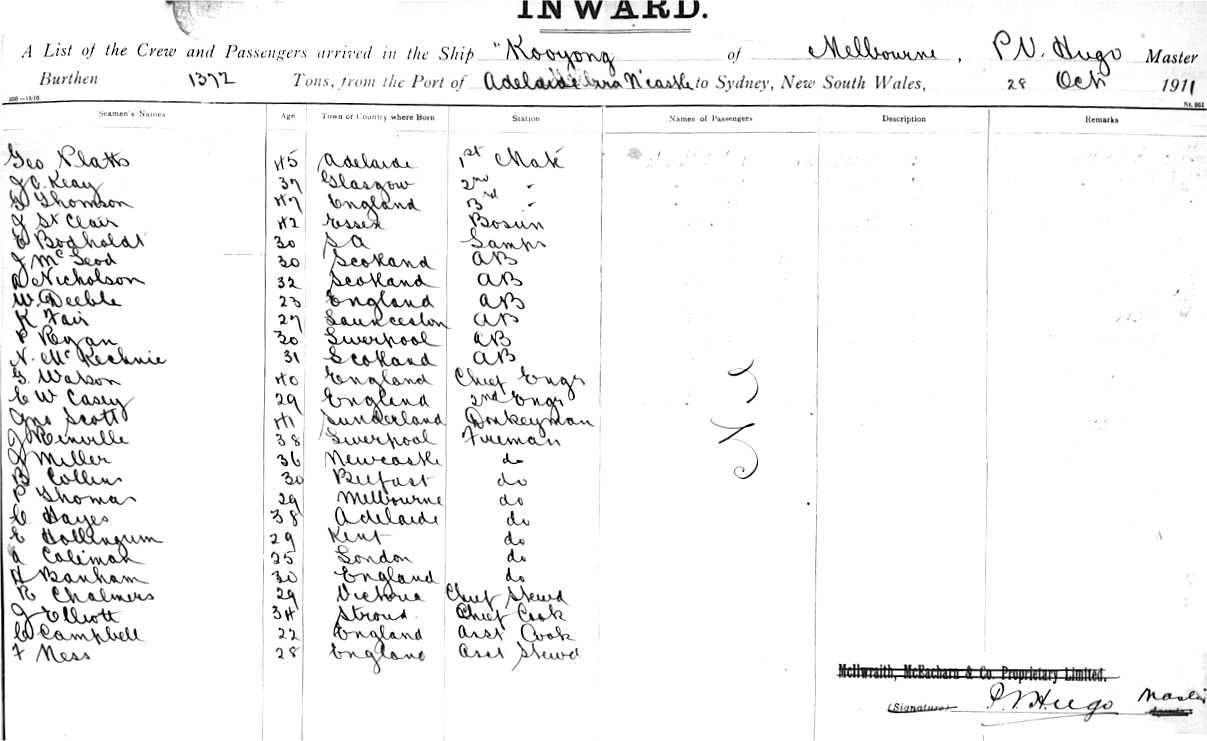 INWARD.
A List of the Crew and Passengers arrived in the Ship "Kooyong of Melbourne, P.V. Hugo Master
Burthen 1372 Tons, from the Port of Adelaide N'castle to Sydney, New South Wales, 28 Oct 1911
Seamen's Names Age Town or Country where Born Station Names of Passengers Description Remarks
Geo Platts 45 Adelaide 1st Mate
J C. Keay 37 Glasgow 2nd "
Thomson 47 England 3rd "
J St Clair 42 Essex Bosun
E Bodholdt 30 SA Lamps
J McLeod 30 Scotland AB
D Nicholson 32 Scotland AB
W. Deeble 23 England AB
K Fair 27 Launceston AB
P Regan 30 Liverpool AB
N. McKechnie 31 Scotland AB
G. Watson 40 England Chief Engr
C W Casey 29 England 2nd Engr
Jno Scott 41 Sunderland Donkeyman
J 38 Liverpool Fireman
J Miller 36 Newcastle do
B Collins 30 Belfast do
P Thomas 29 Melbourne do
C Hayes 38 Adelaide do
E Hollingum 29 Kent do
A Coleman 25 London do
H Banham 30 England do
R Chalmers 29 Victoria Chief Stewd
J Elliott 34 Stroud Chief Cook
C Campbell 22 England Asst Cook
F Ness 28 England Asst Stewd
McIlwraith, McEacharn & Co. Proprietary Limited.
(Signature) P.V. Hugo Master